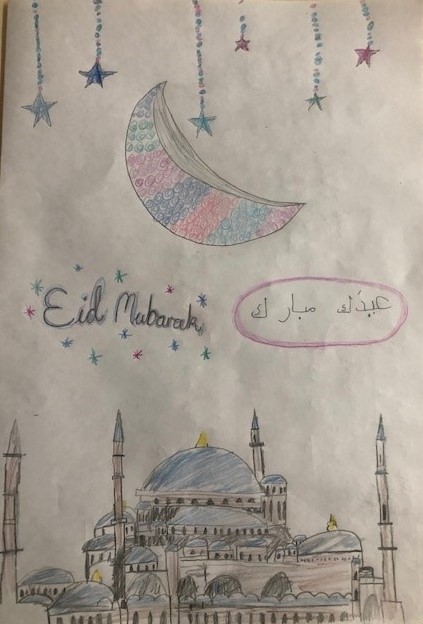 Eid Mubarak
عيدك مبارك